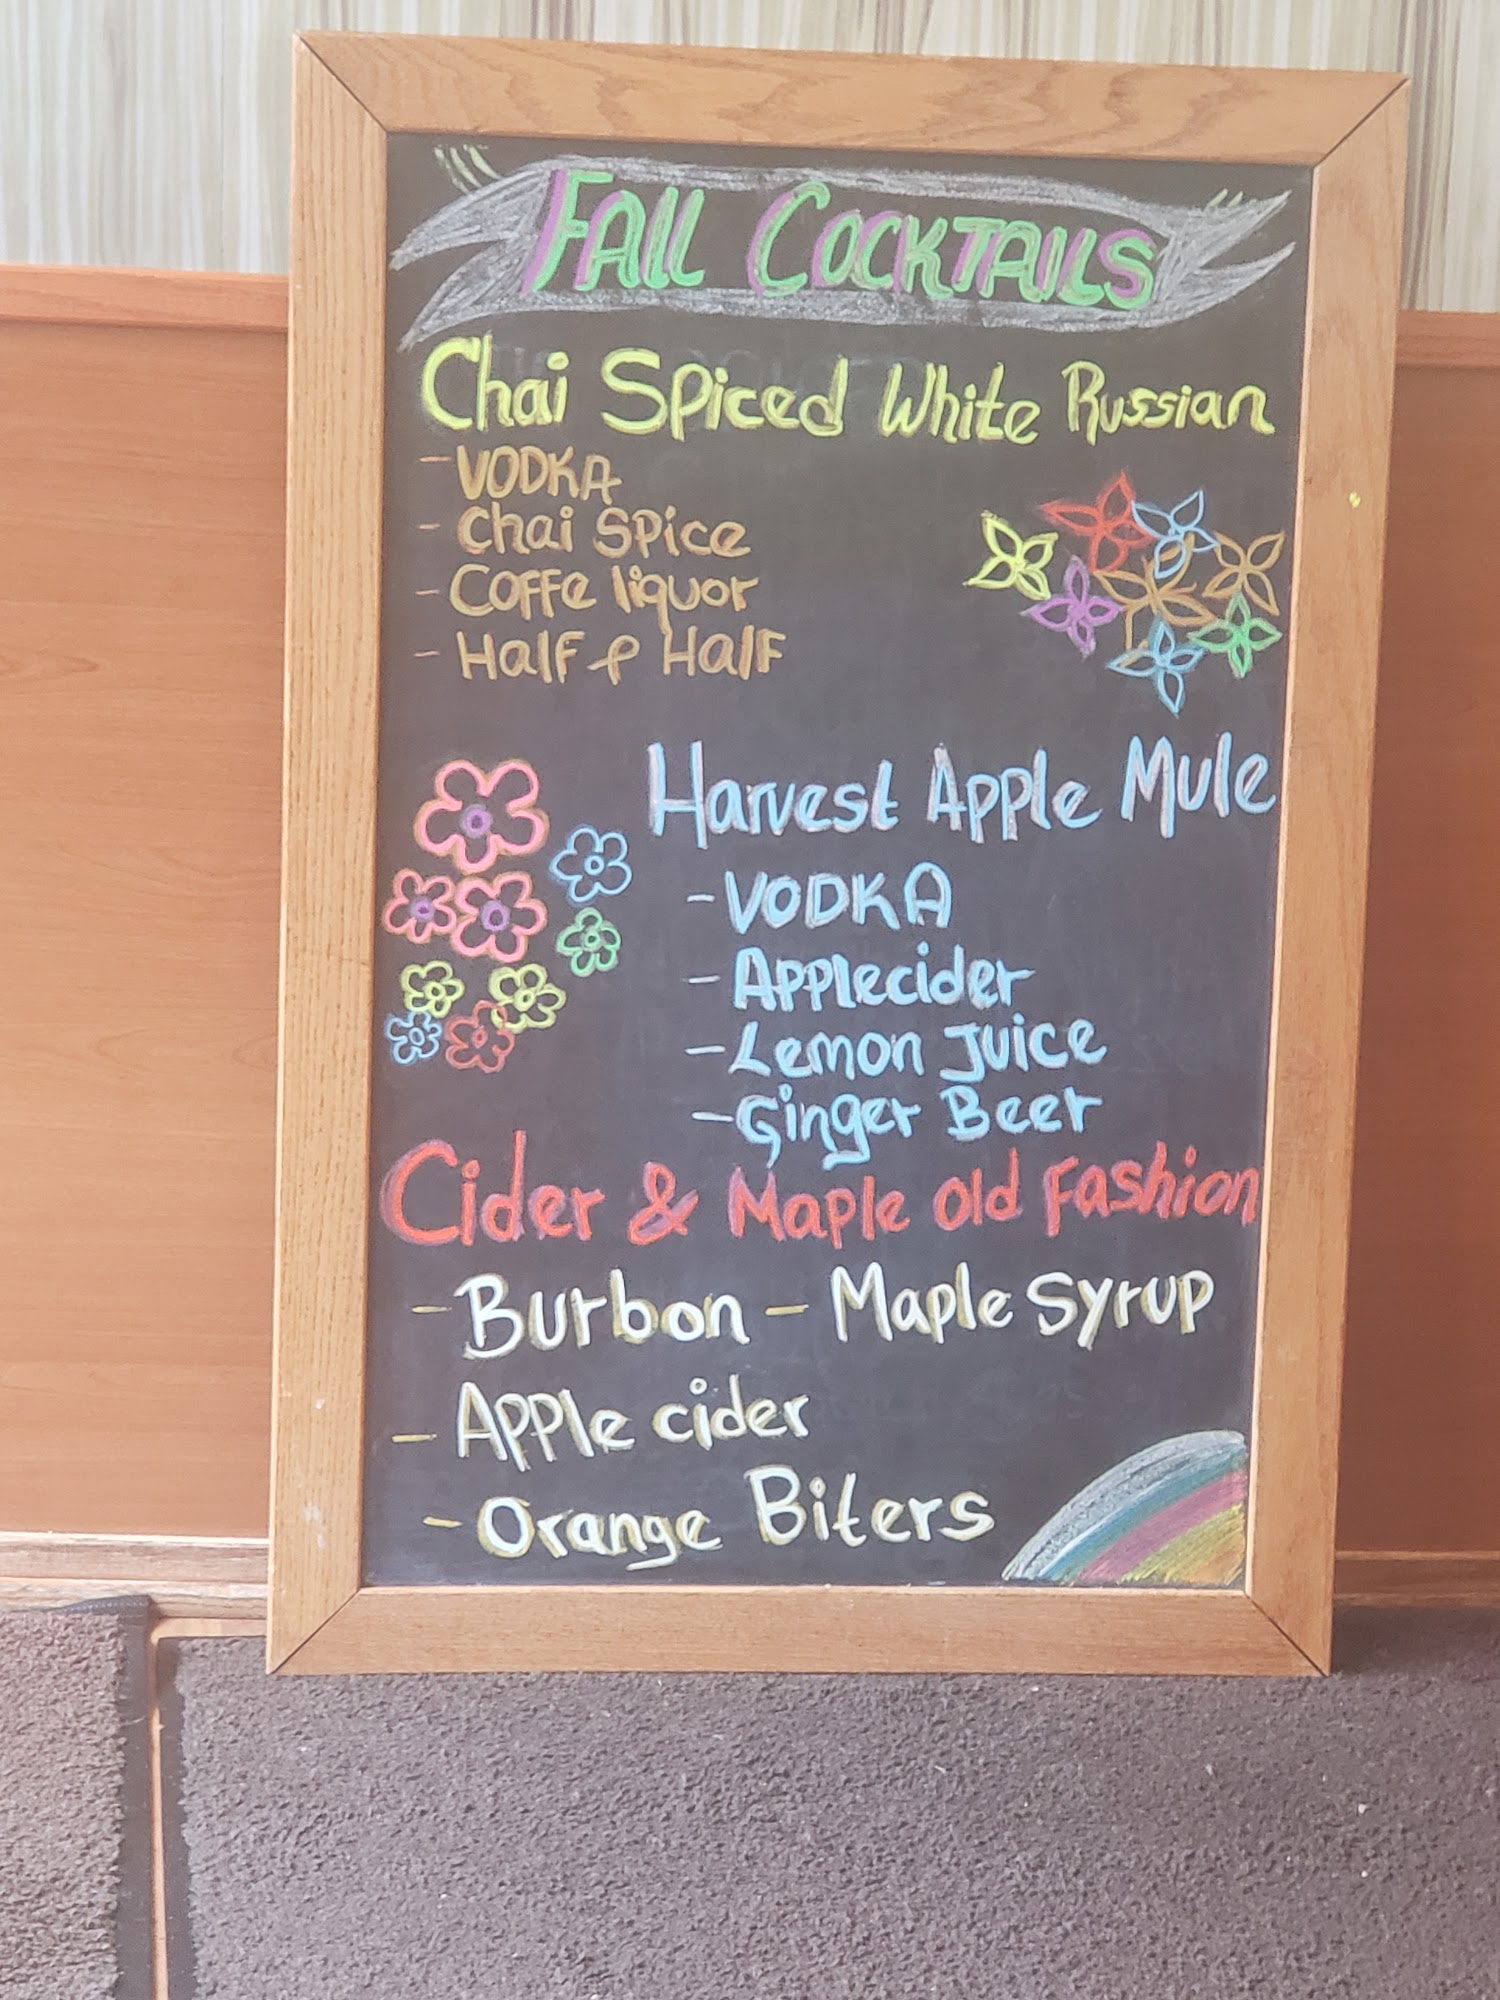 FAll COCKTAILS
Chai Spiced White Russian
- VODKA
- Chai Spice
- Coffe liquor
- Half & Half
Harvest Apple Mule
- VODKA
- Applecider
- Lemon Juice
- Ginger Beer
Cider & Maple Old Fashion
- Burbon - Maple Syrup
- Apple cider
- Orange Biters